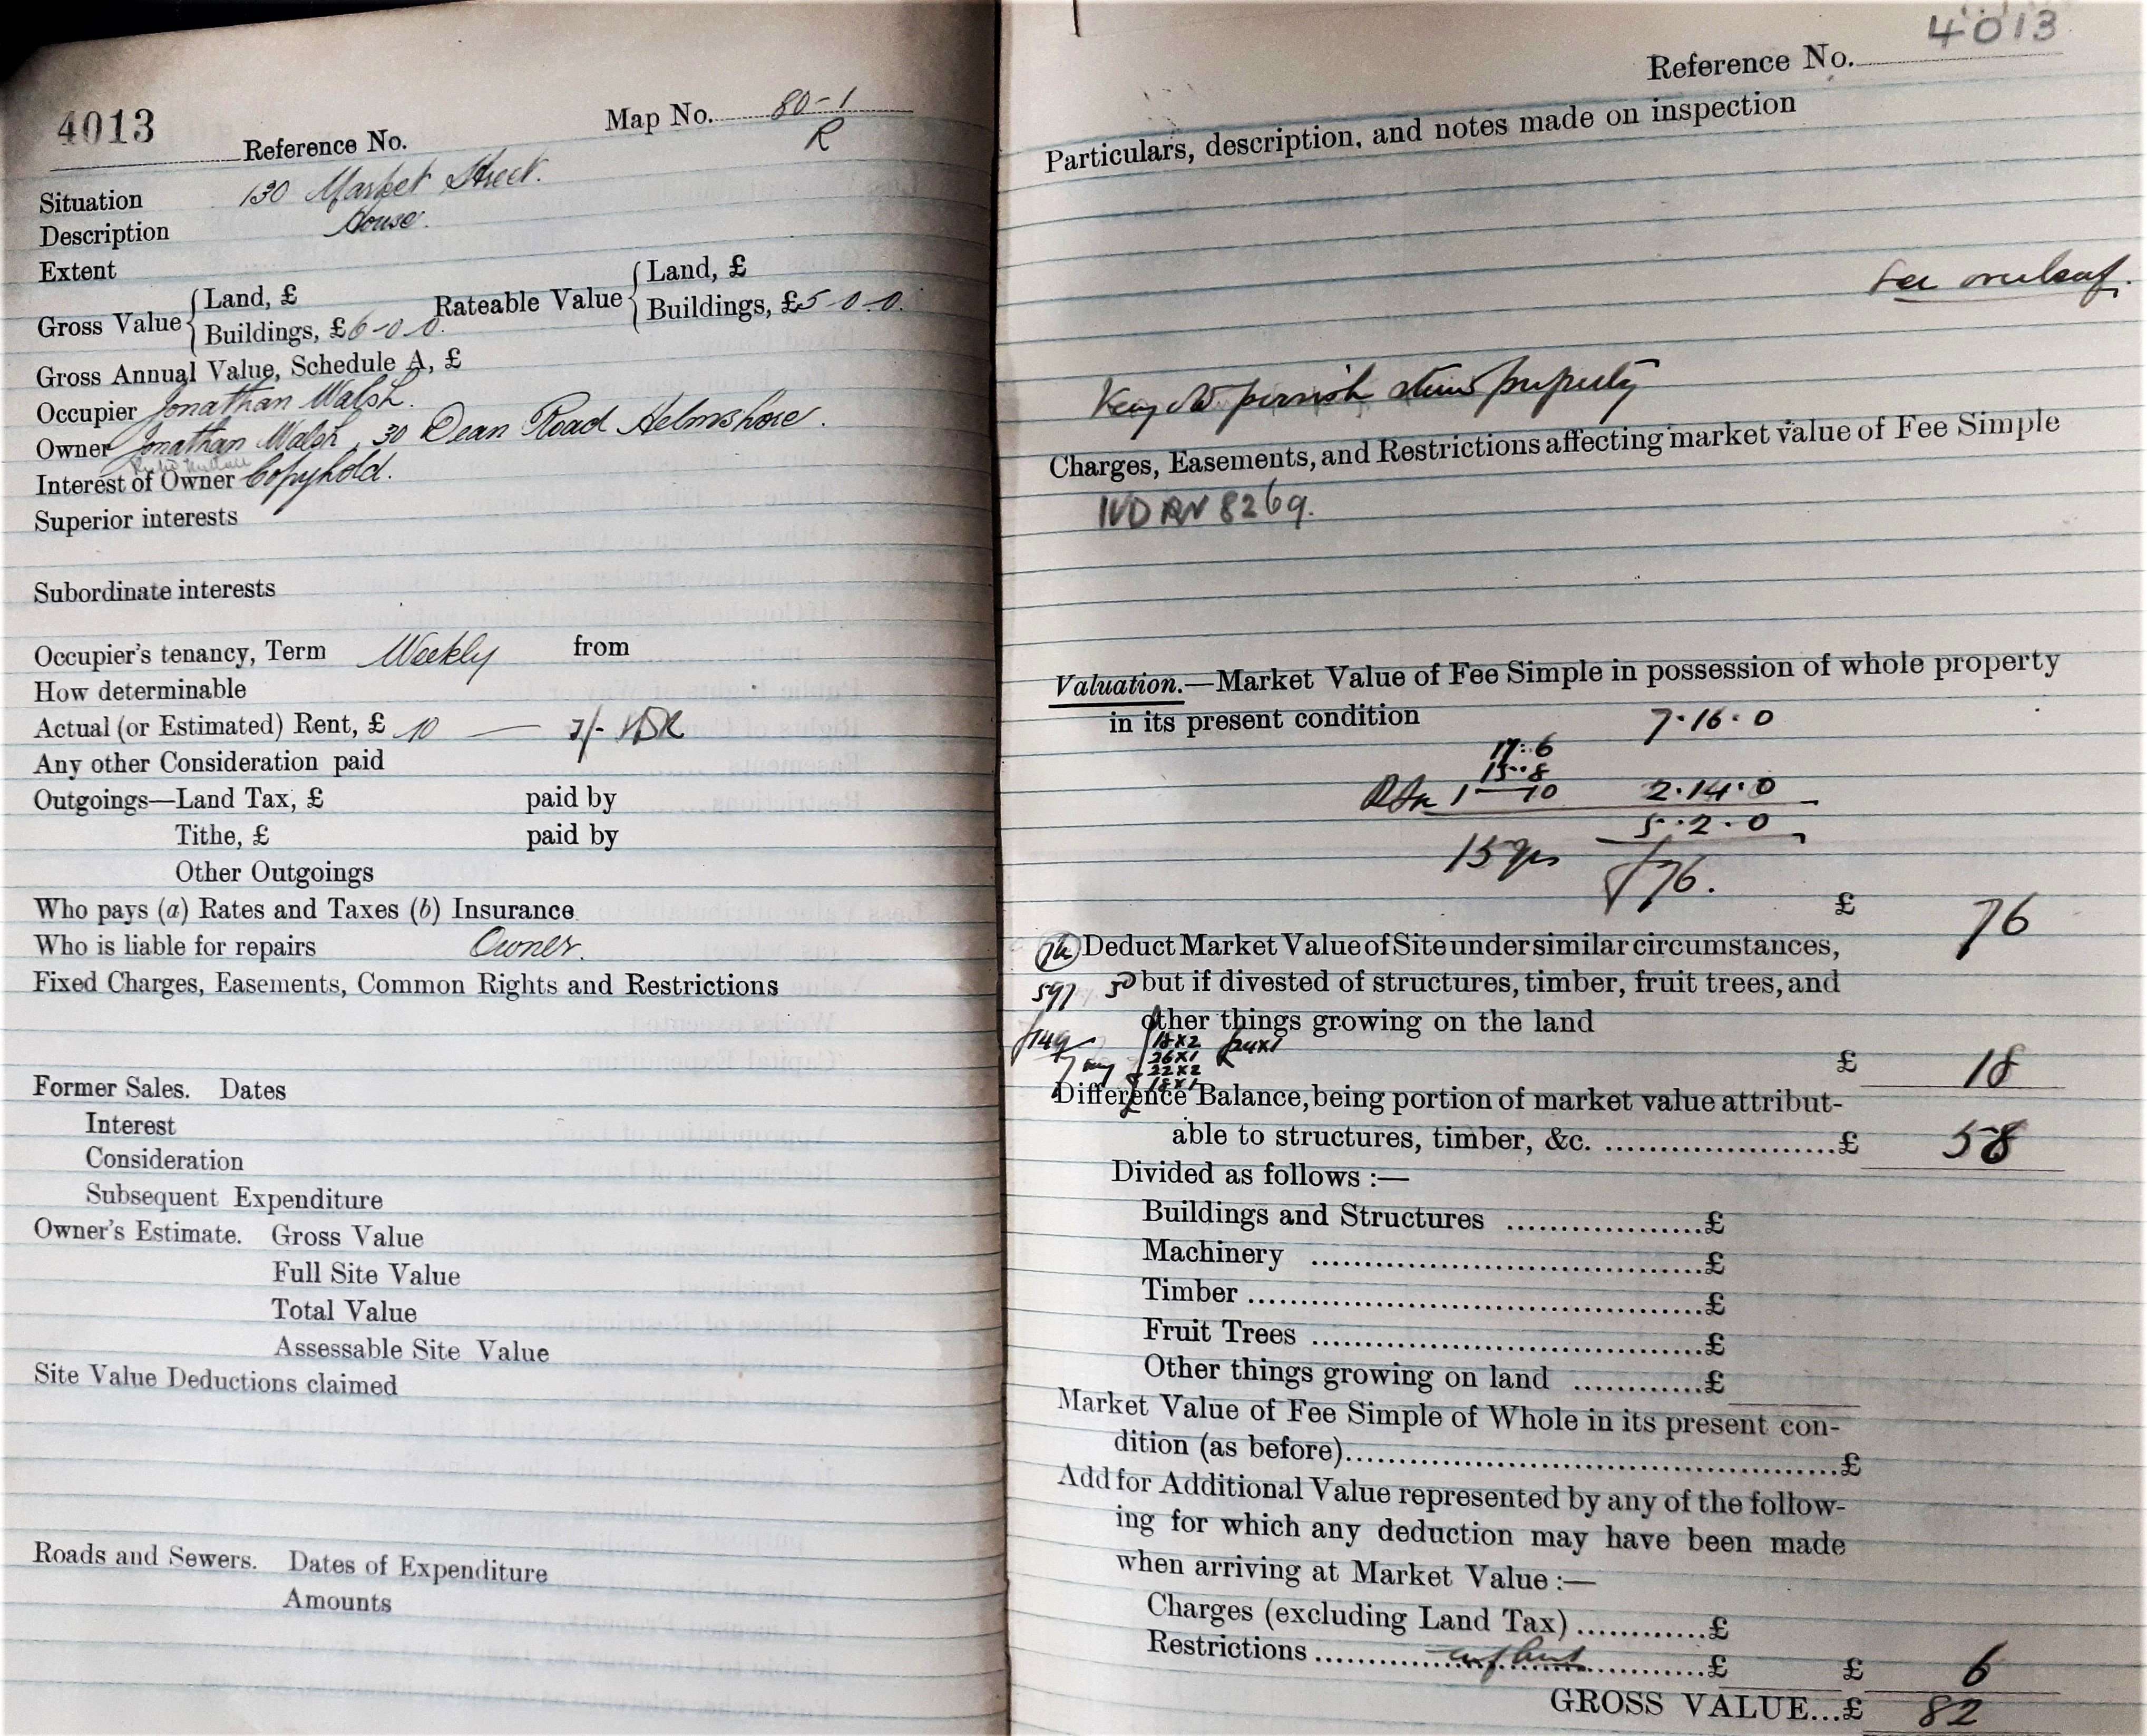 4013 Reference No. Map No. 80-1
R
Situation 130 Market Street.
Description House.
Extent
Gross Value { Land, £ Rateable Value { Land, £
Buildings, £6-0-0. Buildings, £5-0-0.
Gross Annual Value, Schedule A, £
Occupier Jonathan Walsh.
Owner Jonathan Walsh, 30 Dean Road Helmshore.
Interest of Owner Copyhold.
Superior interests
Subordinate interests
Occupier's tenancy, Term Weekly from
How determinable
Actual (or Estimated) Rent, £ 10 —
Any other Consideration paid
Outgoings—Land Tax, £ paid by
Tithe, £ paid by
Other Outgoings
Who pays (a) Rates and Taxes (b) Insurance
Who is liable for repairs Owner.
Fixed Charges, Easements, Common Rights and Restrictions
Former Sales. Dates
Interest
Consideration
Subsequent Expenditure
Owner's Estimate. Gross Value
Full Site Value
Total Value
Assessable Site Value
Site Value Deductions claimed
Roads and Sewers. Dates of Expenditure
Amounts
Reference No. 4013
Particulars, description, and notes made on inspection
See overleaf.
Very old property
Charges, Easements, and Restrictions affecting market value of Fee Simple
IVD RN 8269.
Valuation.—Market Value of Fee Simple in possession of whole property
in its present condition 7.16.0
17.6
15.8
1 — 10 2.14.0
5.2.0
15 yrs £76.
£ 76
Deduct Market Value of Site under similar circumstances,
597 but if divested of structures, timber, fruit trees, and
other things growing on the land
18x2
26x1
22x2
18x1
£ 18
Difference Balance, being portion of market value attribut-
able to structures, timber, &c. ....................£ 58
Divided as follows :—
Buildings and Structures ..................£
Machinery ....................................£
Timber ..........................................£
Fruit Trees ....................................£
Other things growing on land ............£
Market Value of Fee Simple of Whole in its present con-
dition (as before)..................................................£
Add for Additional Value represented by any of the follow-
ing for which any deduction may have been made
when arriving at Market Value :—
Charges (excluding Land Tax) ............£
Restrictions ....................................£ £ 6
GROSS VALUE...£ 82